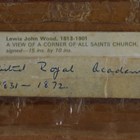 Lewis John Wood, 1813-1901
A VIEW OF A CORNER OF ALL SAINTS CHURCH,
signed - 15 ins. by 10 ins.
Royal Academ
1831 - 1872.